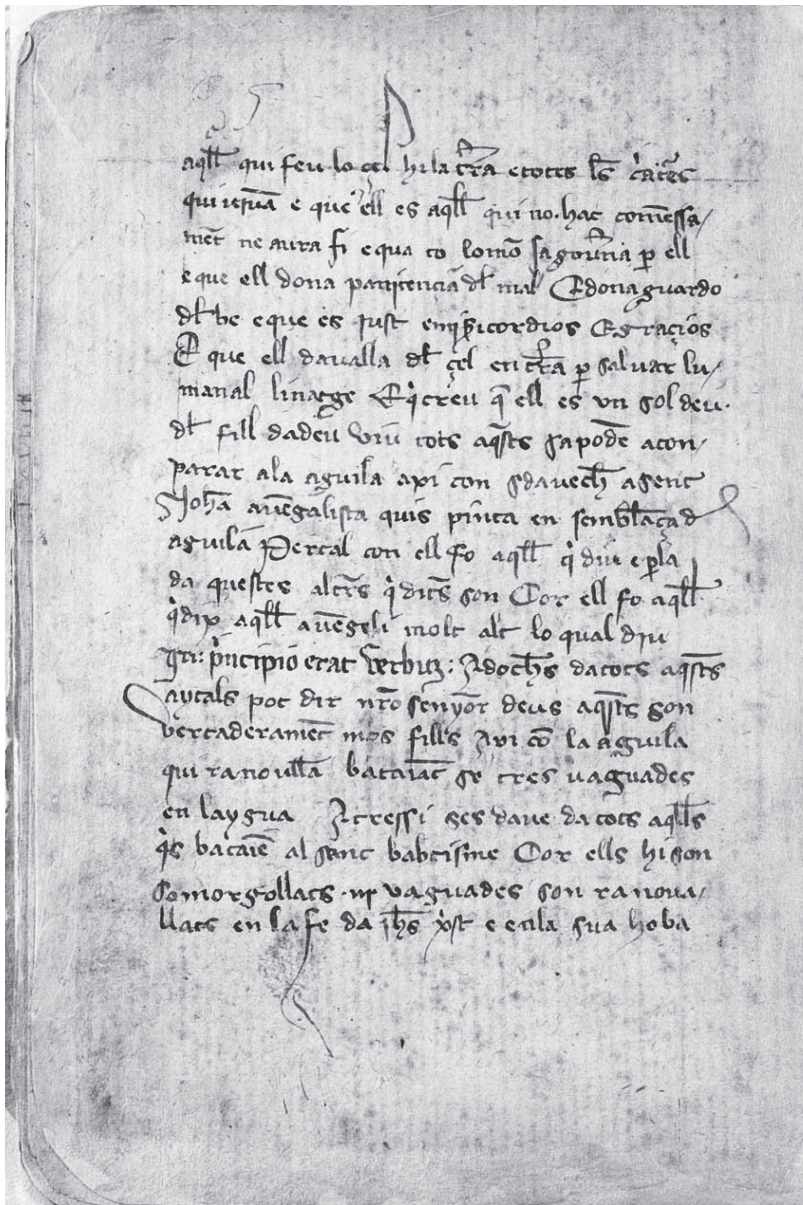 aqll qui feu lo cel hi la tra e totes les creatures
qui ieruan e que ell es aqll qui no hac comessa/
met ne aura fi e qua to lo mo sa gouerna p ell
e que ell dona penitencia dl mal E dona guardo
dl be e que es just e misicordios E gracios
E que ell davalla dl çel en tra p saluar lu/
manal linatge E qi creu q ell es vn sol deu.
dl fill da deu viu tots aqsts sa poden acon/
parar a la aguila axi con sdauech a sent
Joha auegalista quis pinta en semblaça d
aguila Per tal con ell fo aqll qi diu e parla
da questes altres qi dits son Cor ell fo aqll
qi dix aqll auengeli molt alt lo qual diu
In principio erat verbum: Adochs da tots aqsts
aytals pot dir nro senyor deus aqsts son
vertaderamet mos fills Axi co la aguila
qui ranoulla bataiat se tres uaguades
en laygua Atressi ses daue da tots aqlls
qis bataie al sant babtisme Cor ells hi son
somorgollats .iij. vaguades son ranoua/
llats en la fe da jhs xst e en la sua hoba